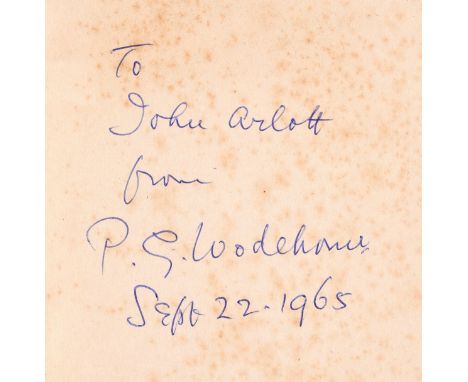 To
John Arlott
from
P. G. Wodehouse
Sept 22. 1965